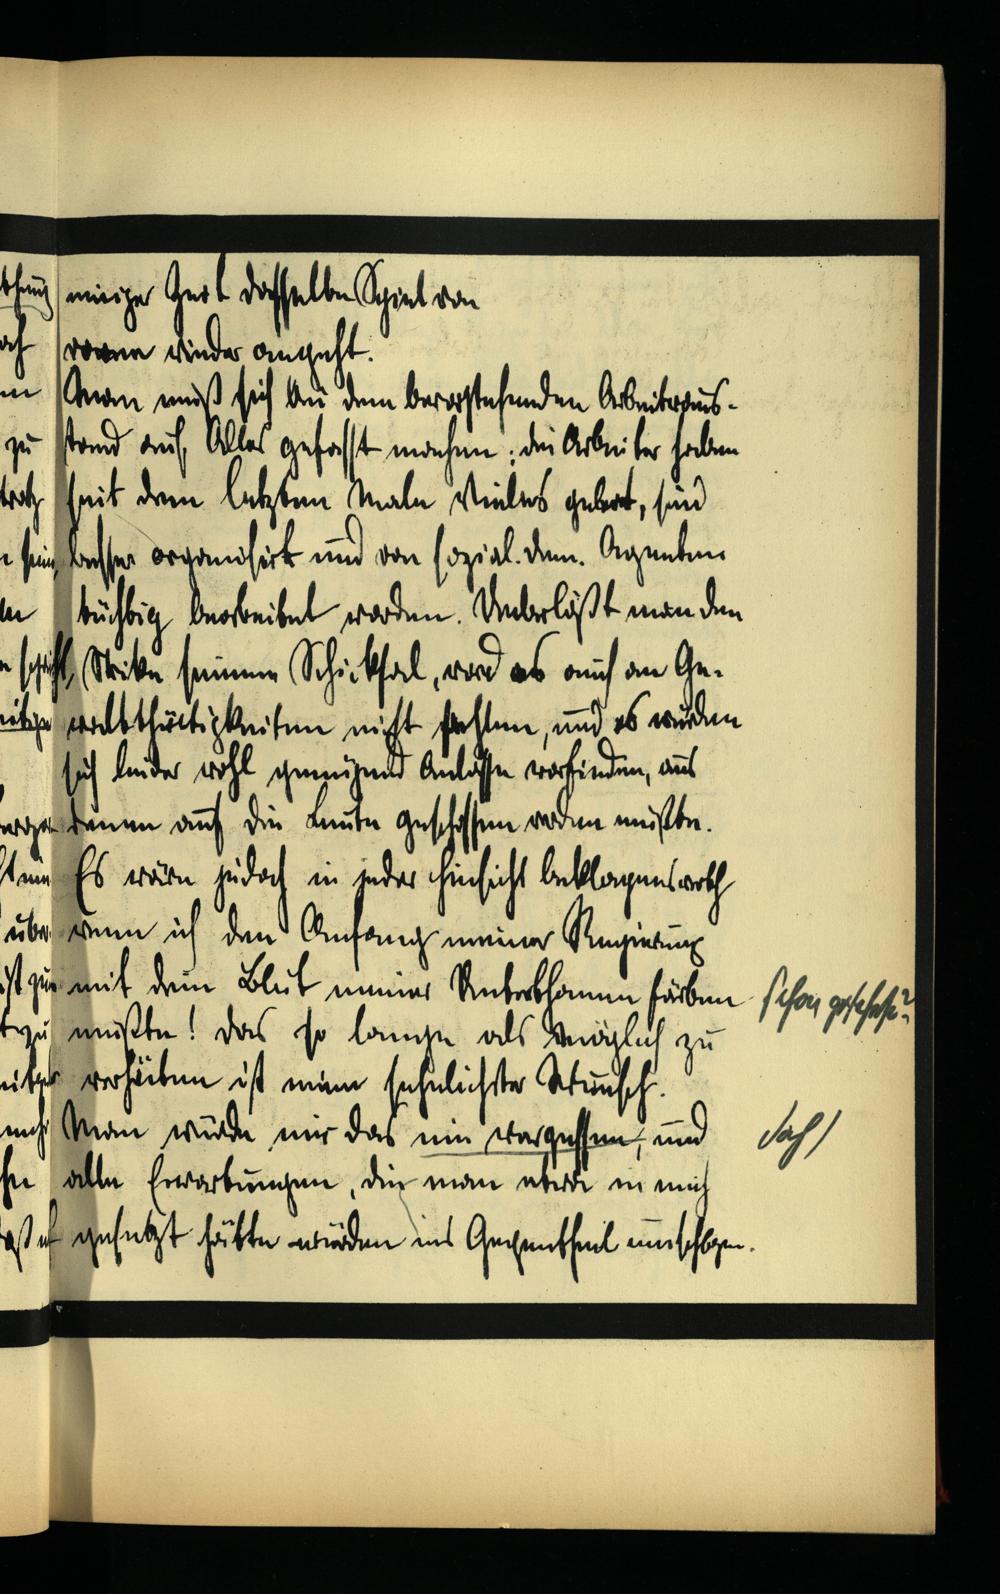 einiger Zeit dasselbe Spiel von
vorne wieder angeht.
Man muß sich bei dem bevorstehenden Arbeiteraus-
stand auf Alles gefasst machen; die Arbeiter haben
seit dem letzten Male Vieles gelernt, sind
besser organisirt und von sozial. dem. Agenten
tüchtig bearbeitet worden. Ueberläßt man den
Strike seinem Schicksal, wird es auch an Ge-
waltthätigkeiten nicht fehlen, und es würden
sich leider wohl genügend Anlässe vorfinden, aus
denen auf die Leute geschossen werden müßte.
Es wäre jedoch in jeder Hinsicht beklagenswerth
wenn ich den Anfang meiner Regierung
mit dem Blut meiner Unterthanen färben
müßte! Das so lange als möglich zu
verhüten ist mein sehnlichster Wunsch.
Man würde mir das nie vergessen, und
alle Erwartungen, die man etwa in mich
gesetzt hätte würden ins Gegentheil umschlagen.
schon geschehn?